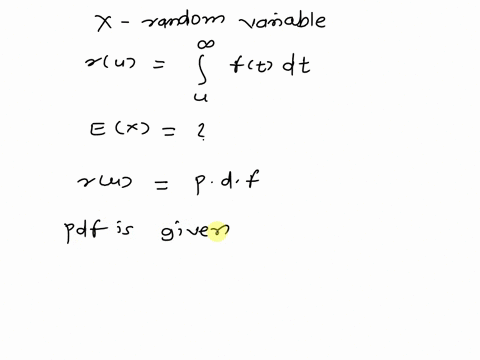 X - random variable
r(u) = ∫_u^∞ f(t) dt
E(x) = ?
r(u) = p.d.f
pdf is given